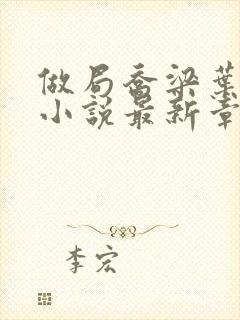 做局喬梁葉
小說最新章
李宏